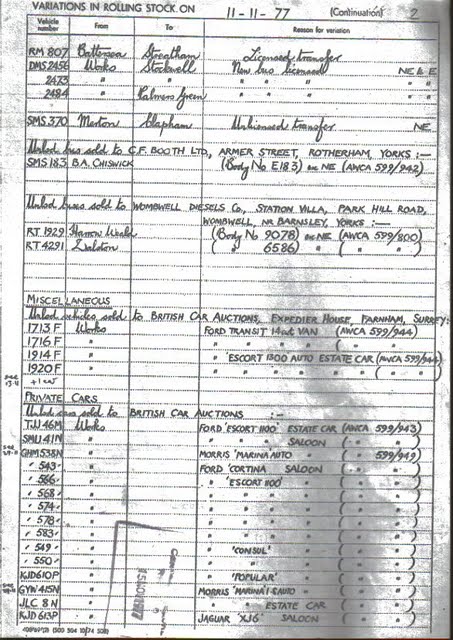 VARIATIONS IN ROLLING STOCK ON 11-11-77 (Continuation) 2
Vehicle number From To Reason for variation
RM 807 Battersea Streatham Licensed transfer
DMS 2456 Works Stockwell New bus licensed NE & E
2473 " " " " " " "
2484 " Palmers Green " " " " "
SMS 370 Merton Clapham Unlicensed transfer NE
Unlicd bus sold to C.F. BOOTH LTD, ARMER STREET, ROTHERHAM, YORKS :—
SMS 183 B.A. CHISWICK (Body No E183) ex NE (AWCA 599/942)
Unlicd buses sold to WOMBWELL DIESELS Co., STATION VILLA, PARK HILL ROAD,
WOMBWELL, NR BARNSLEY, YORKS :—
RT 1929 Harrow Weald (Body No 9078) ex NE (AWCA 599/800)
RT 4291 Dalston ( " 6586) " ( " " )
MISCELLANEOUS
Unlicd vehicles sold to BRITISH CAR AUCTIONS, EXPEDIER HOUSE, FARNHAM, SURREY:
1713 F Works FORD TRANSIT 14cwt VAN (AWCA 599/944)
1716 F " " " " " ( " " )
1914 F " " 'ESCORT 1300 AUTO ESTATE CAR (AWCA 599/944)
1920 F " " " " " " ( " " )
PRIVATE CARS
Unlicd cars sold to BRITISH CAR AUCTIONS :—
TJJ 46M Works FORD 'ESCORT 1100' ESTATE CAR (AWCA 599/943)
SMU 41N " " " SALOON ( " " )
GHM 538N " MORRIS 'MARINA AUTO " ( " 599/949)
" 543 " " FORD 'CORTINA SALOON ( " " )
" 566 " " " 'ESCORT 1100' " ( " " )
" 568 " " " " " ( " " )
" 574 " " " " " ( " " )
" 578 " " " " " ( " " )
" 583 " " " " " ( " " )
" 549 " " " 'CONSUL' " ( " " )
" 550 " " " " " ( " " )
KJD 610P " " 'POPULAR' " ( " " )
GYW 415N " MORRIS 'MARINA' 1.8 AUTO " ( " " )
JLC 8N " " " ESTATE CAR ( " " )
KJD 613P " JAGUAR 'XJ6' SALOON ( " " )